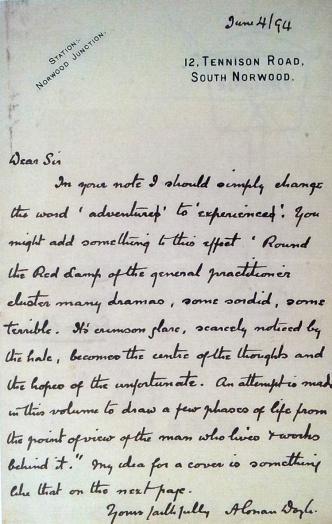 June 4/94
STATION:-
NORWOOD JUNCTION.
12, TENNISON ROAD,
SOUTH NORWOOD.
Dear Sir
In your note I should simply change
the word 'adventures' to 'experiences'. You
might add something to this effect 'Round
the Red Lamp of the general practitioner
cluster many dramas, some sordid, some
terrible. Its crimson glare, scarcely noticed by
the hale, becomes the centre of the thoughts and
the hopes of the unfortunate. An attempt is made
in this volume to draw a few phases of life from
the point of view of the man who lives & works
behind it." My idea for a cover is something
like that on the next page.
Yours faithfully A Conan Doyle.